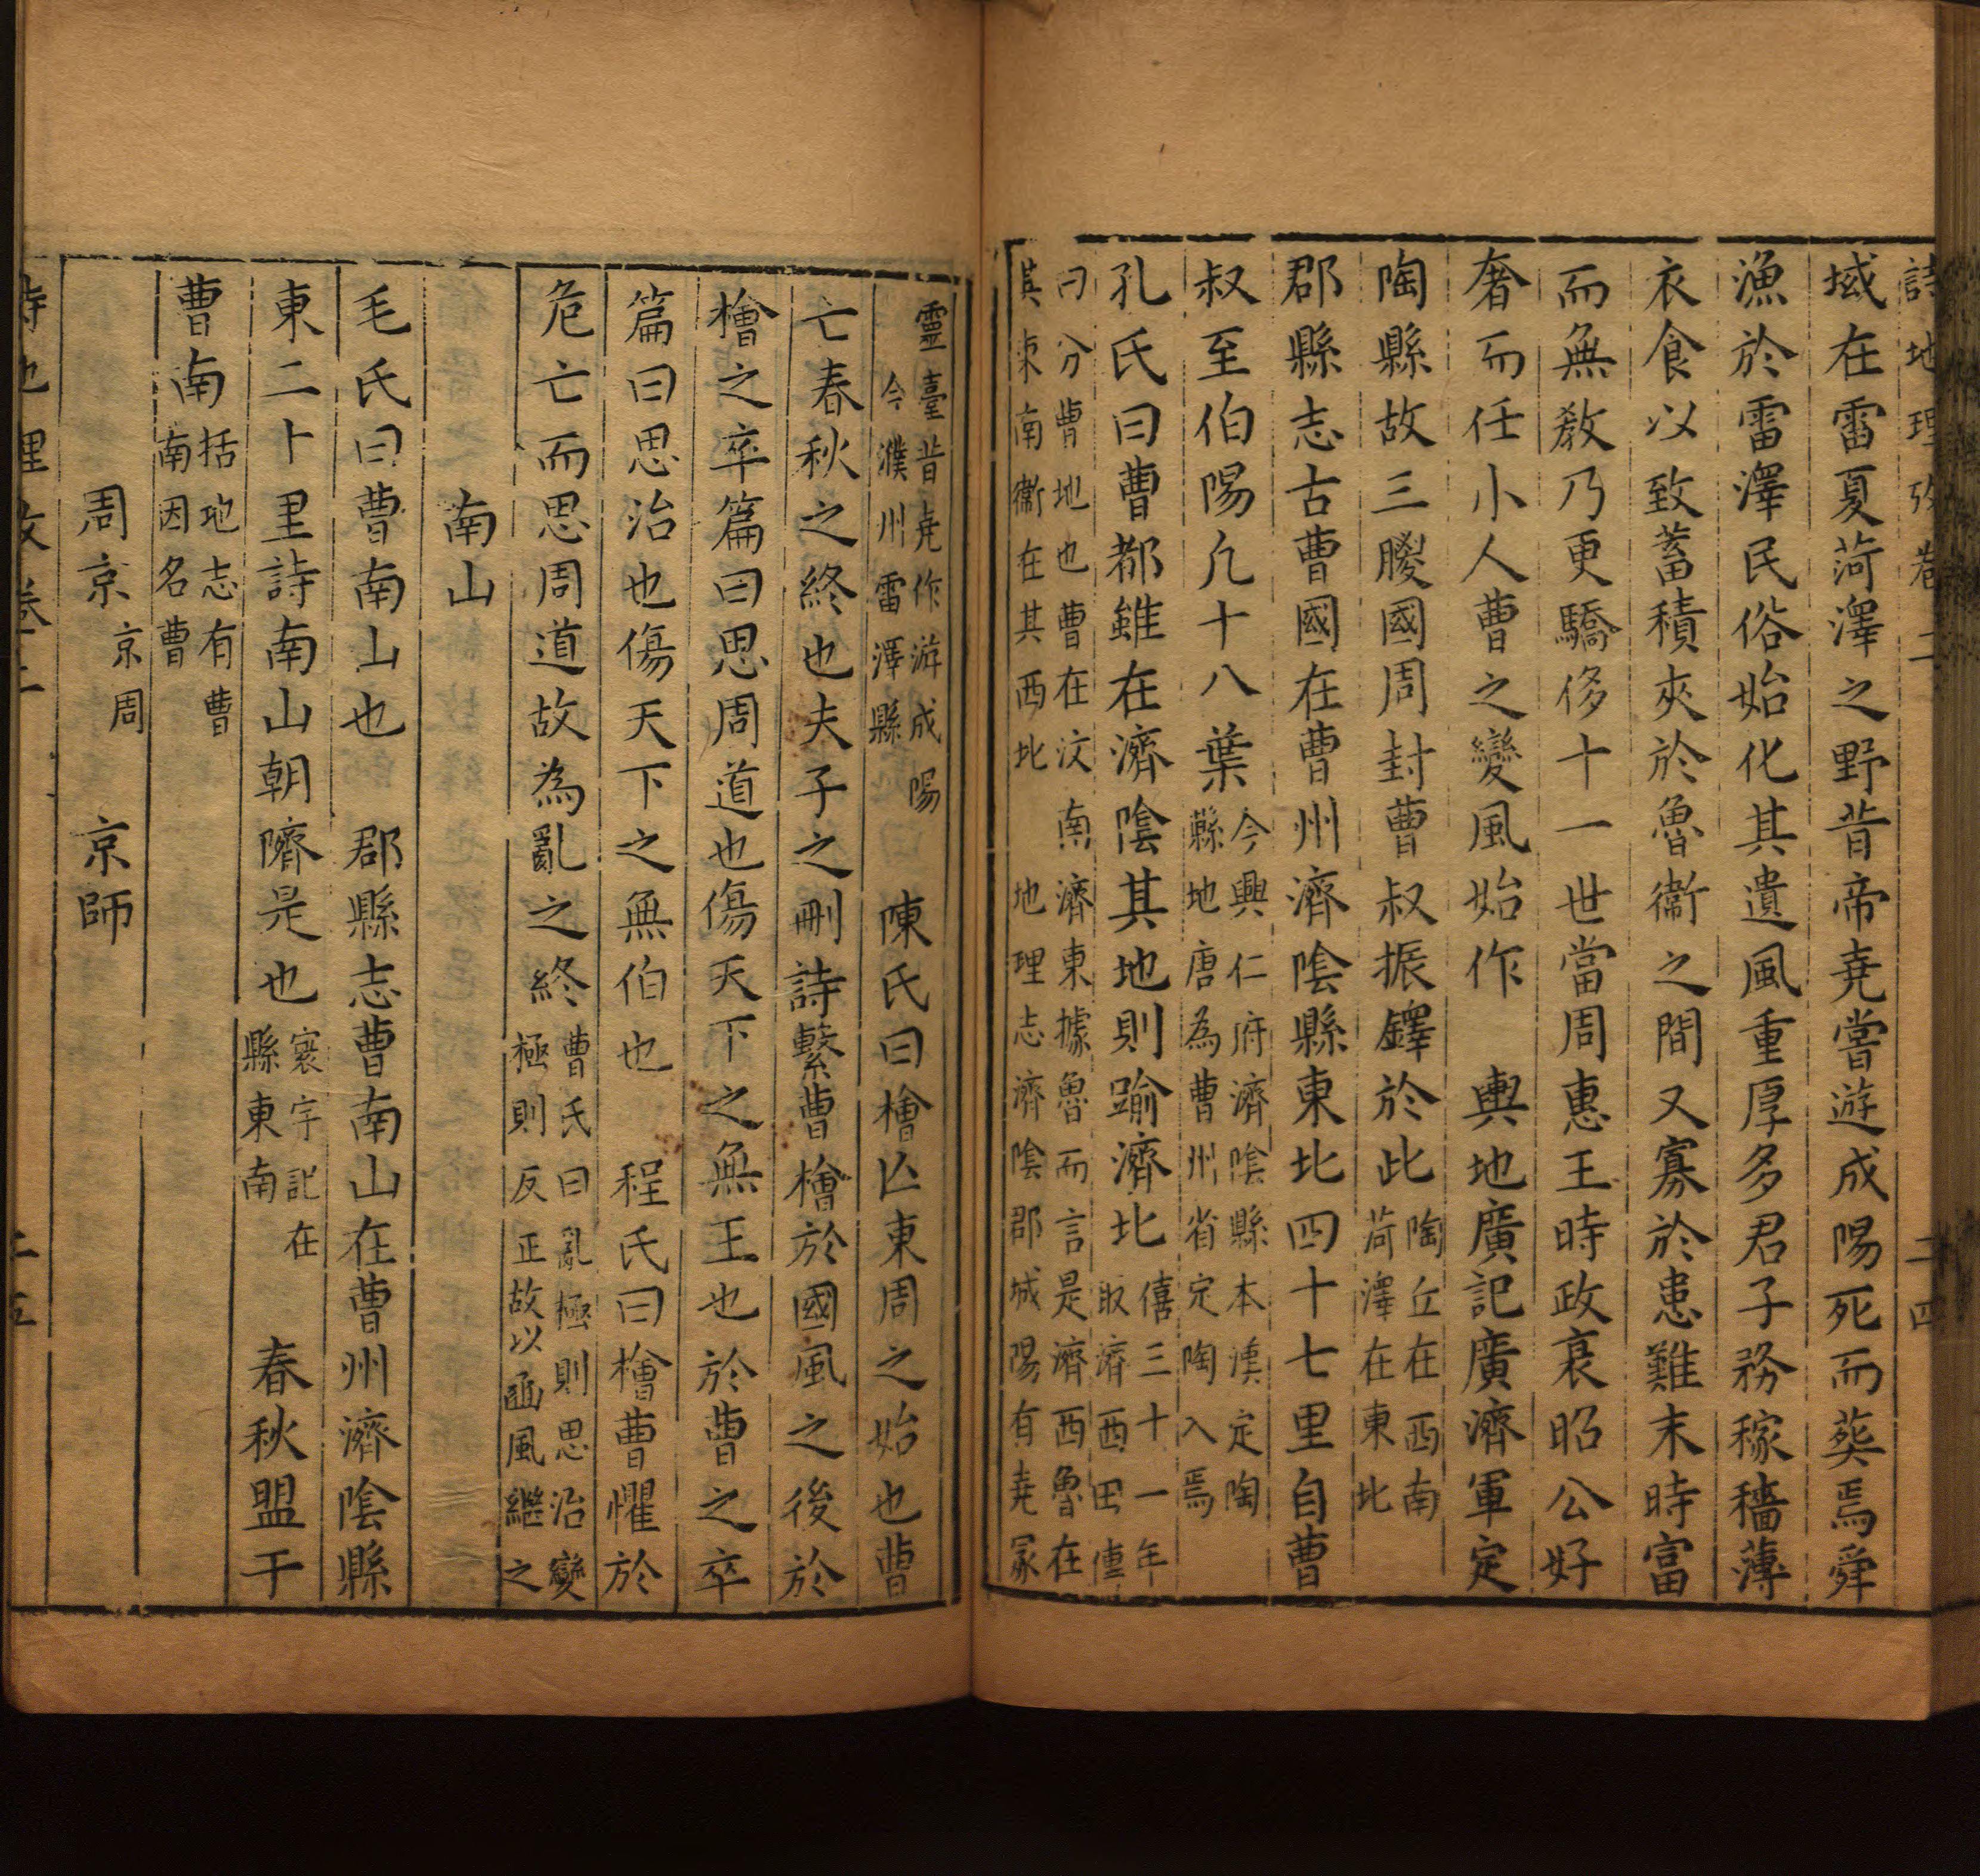 詩地理攷卷二 二四
域在雷夏菏澤之野昔帝堯嘗遊成陽死而葬焉舜
漁於雷澤民俗始化其遺風重厚多君子務稼穡薄
衣食以致蓄積夾於魯衞之間又寡於患難末時富
而無教乃更驕侈十一世當周惠王時政衰昭公好
奢而任小人曹之變風始作　輿地廣記廣濟軍定
陶縣故三朡國周封曹叔振鐸於此陶丘在西南
菏澤在東北
郡縣志古曹國在曹州濟陰縣東北四十七里自曹
叔至伯陽凡十八葉今興仁府濟陰縣本漢定陶
縣地唐為曹州省定陶入焉
孔氏曰曹都雖在濟陰其地則踰濟北僖三十一年
取濟西田傳
曰分曹地也曹在汶南濟東據魯而言是濟西魯在
其東南衞在其西北　地理志濟陰郡城陽有堯冢
靈臺昔堯作游成陽
今濮州雷澤縣
陳氏曰檜亡東周之始也曹
亡春秋之終也夫子之刪詩繫曹檜於國風之後於
檜之卒篇曰思周道也傷天下之無王也於曹之卒
篇曰思治也傷天下之無伯也　程氏曰檜曹懼於
危亡而思周道故為亂之終曹氏曰亂極則思治變
極則反正故以豳風繼之
南山
毛氏曰曹南山也　郡縣志曹南山在曹州濟陰縣
東二十里詩南山朝隮是也寰宇記在
縣東南
春秋盟于
曹南括地志有曹
南因名曹
周京京周　京師
詩地理攷卷二 二五